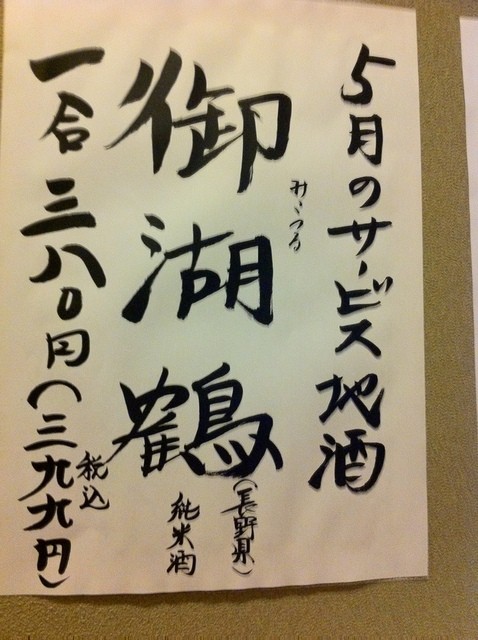 5月のサービス地酒
御湖鶴
みこつる
(長野県)
純米酒
一合三八〇円(三九九円)
税込